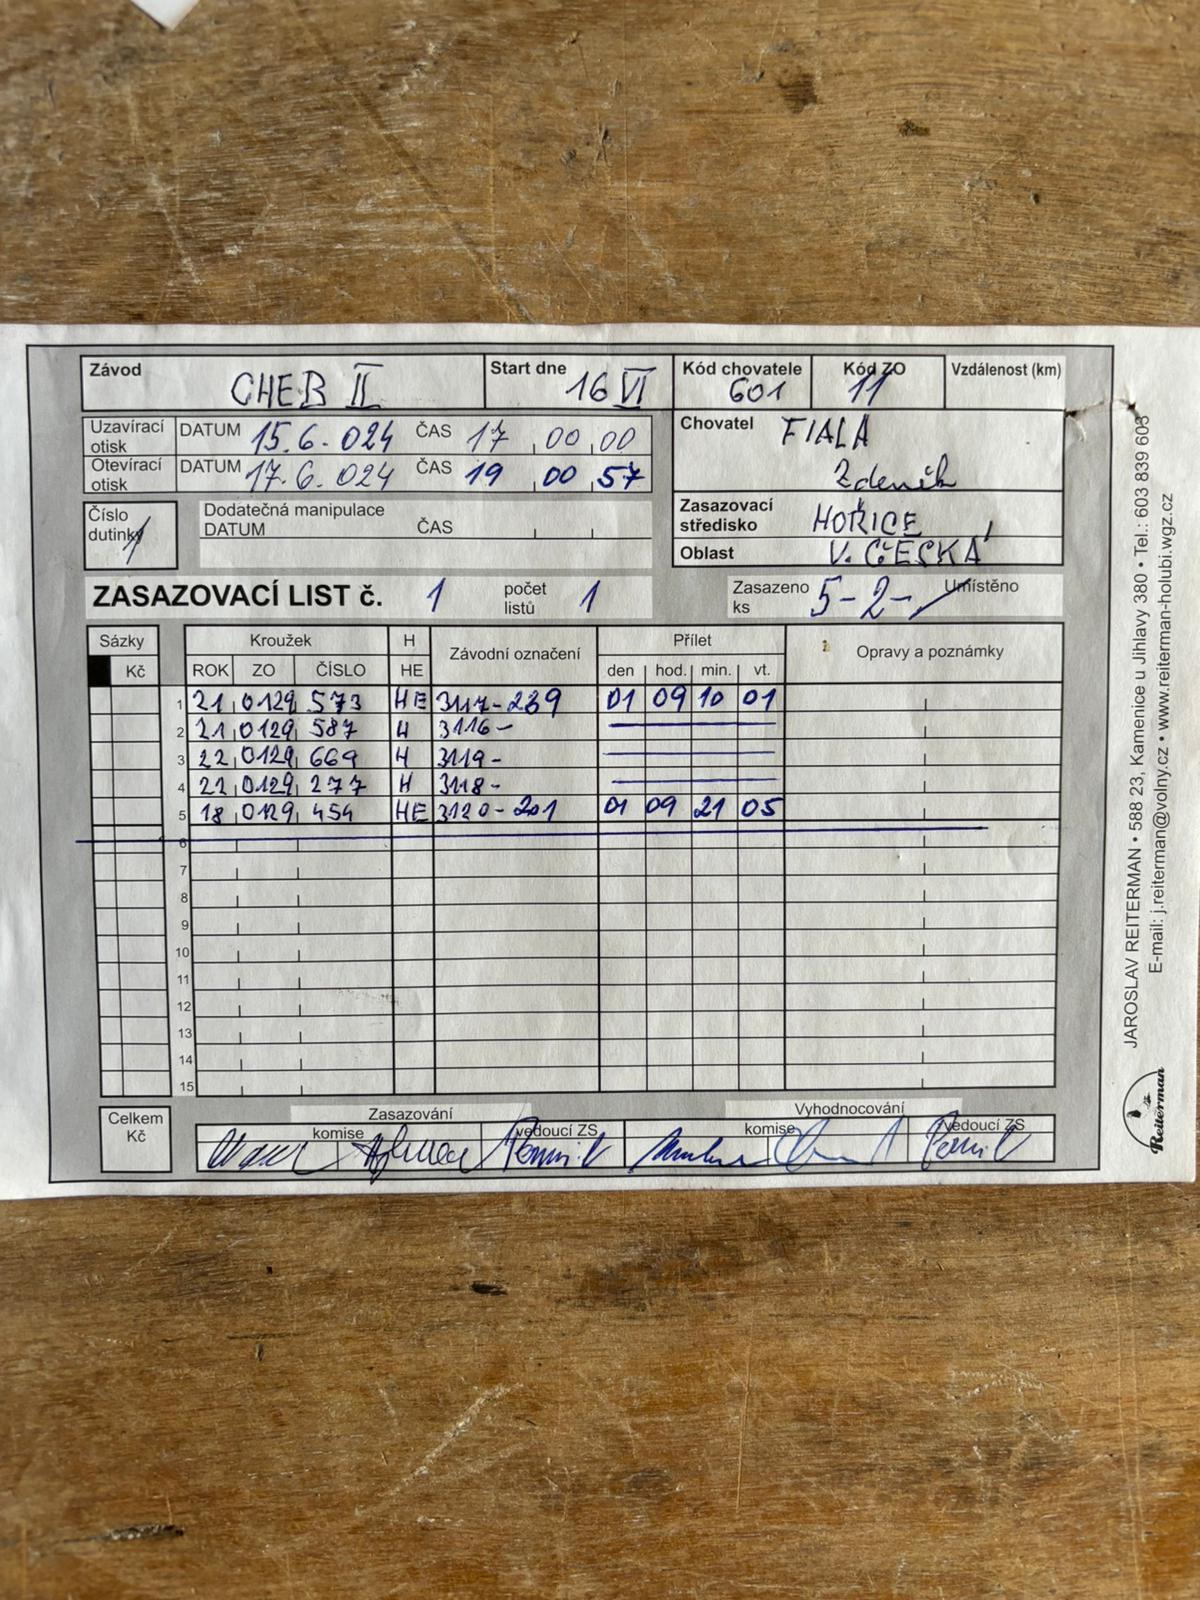 Závod CHEB II Start dne 16 VI Kód chovatele 601 Kód ZO 11 Vzdálenost (km)
Uzavírací otisk DATUM 15.6.024 ČAS 17 00 00
Otevírací otisk DATUM 17.6.024 ČAS 19 00 57
Chovatel FIALA
Zdeněk
Číslo dutinky 1
Dodatečná manipulace
DATUM ČAS
Zasazovací středisko HOŘICE
Oblast V. ČESKÁ
ZASAZOVACÍ LIST č. 1 počet listů 1 Zasazeno ks 5-2- Umístěno
Sázky Kroužek H Závodní označení Přílet Opravy a poznámky
Kč ROK ZO ČÍSLO HE den hod. min. vt.
1 21 0129 573 HE 3117-239 01 09 10 01
2 21 0129 587 H 3116-
3 22 0129 669 H 3119-
4 22 0129 277 H 3118-
5 18 0129 454 HE 3120-201 01 09 21 05
6
7
8
9
10
11
12
13
14
15
Celkem Kč
Zasazování Vyhodnocování
komise vedoucí ZS komise vedoucí ZS
JAROSLAV REITERMAN • 588 23, Kamenice u Jihlavy 380 • Tel.: 603 839 603
E-mail: j.reiterman@volny.cz • www.reiterman-holubi.wgz.cz
Reiterman